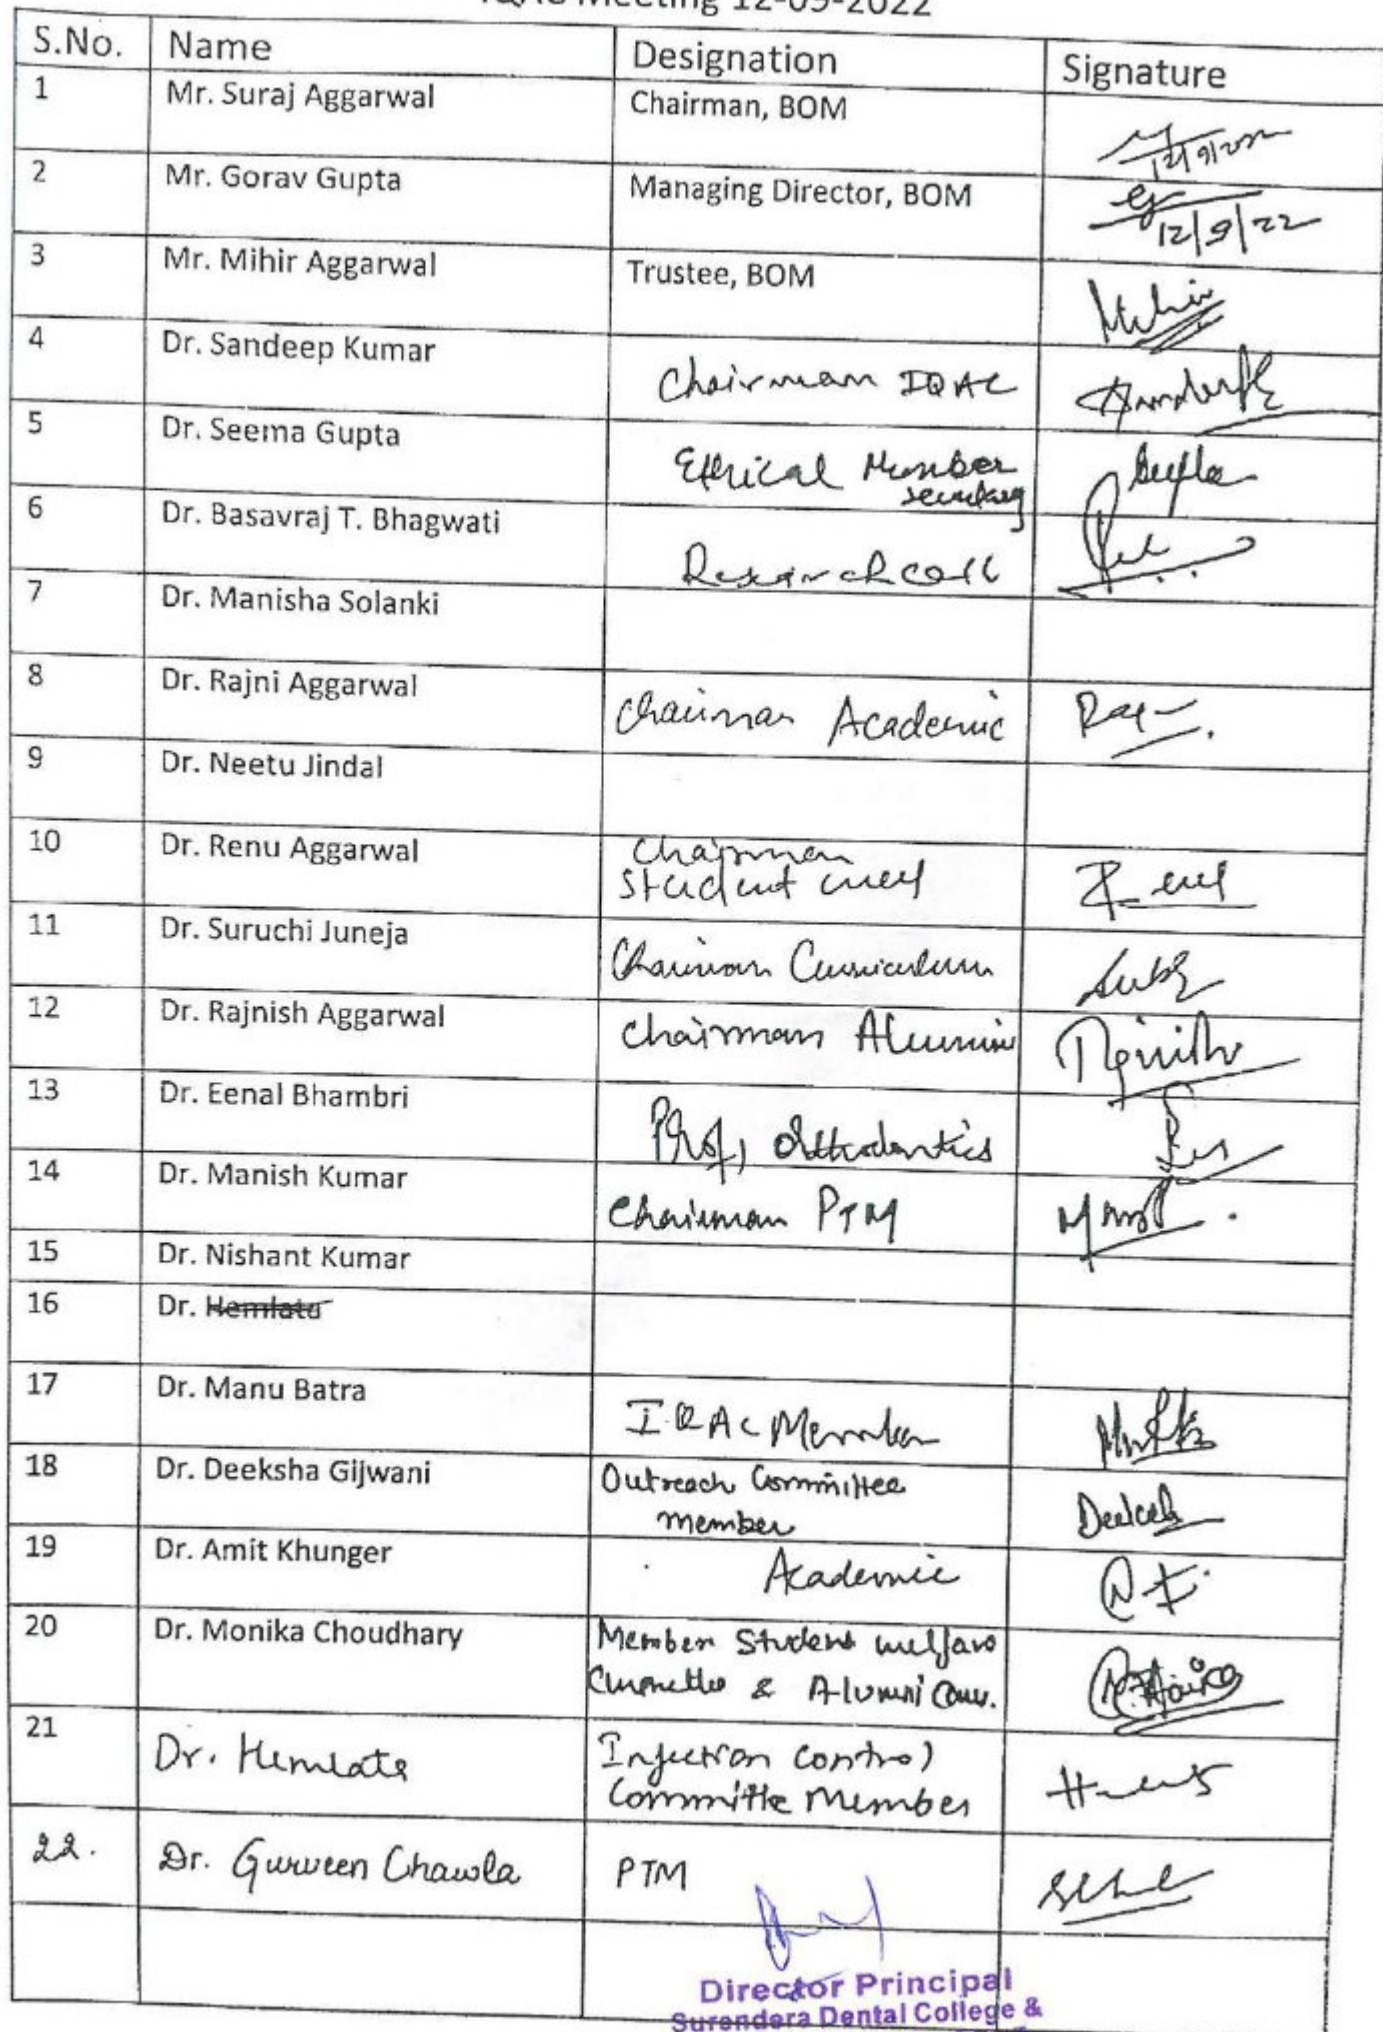 Meeting 12-09-2022
S.No. Name Designation Signature
1 Mr. Suraj Aggarwal Chairman, BOM 12/9/2022
2 Mr. Gorav Gupta Managing Director, BOM 12/9/22
3 Mr. Mihir Aggarwal Trustee, BOM Mihir
4 Dr. Sandeep Kumar Chairman IQAC
5 Dr. Seema Gupta Ethical Member Gupta
secretary
6 Dr. Basavraj T. Bhagwati Research cell
7 Dr. Manisha Solanki
8 Dr. Rajni Aggarwal Chairman Academic
9 Dr. Neetu Jindal
10 Dr. Renu Aggarwal Chairman
Student
11 Dr. Suruchi Juneja Chairman Curriculum
12 Dr. Rajnish Aggarwal Chairman Alumini Rajnish
13 Dr. Eenal Bhambri Prof, Orthodontics
14 Dr. Manish Kumar Chairman PTM
15 Dr. Nishant Kumar
16 Dr. Hemlata
17 Dr. Manu Batra IQAC Member
18 Dr. Deeksha Gijwani Outreach Committee
member
19 Dr. Amit Khunger Academic
20 Dr. Monika Choudhary Member Student welfare
& Alumni
21 Dr. Hemlata Infection control
Committe Member
22. Dr. Gurveen Chawla PTM
Director Principal
Surendera Dental College &